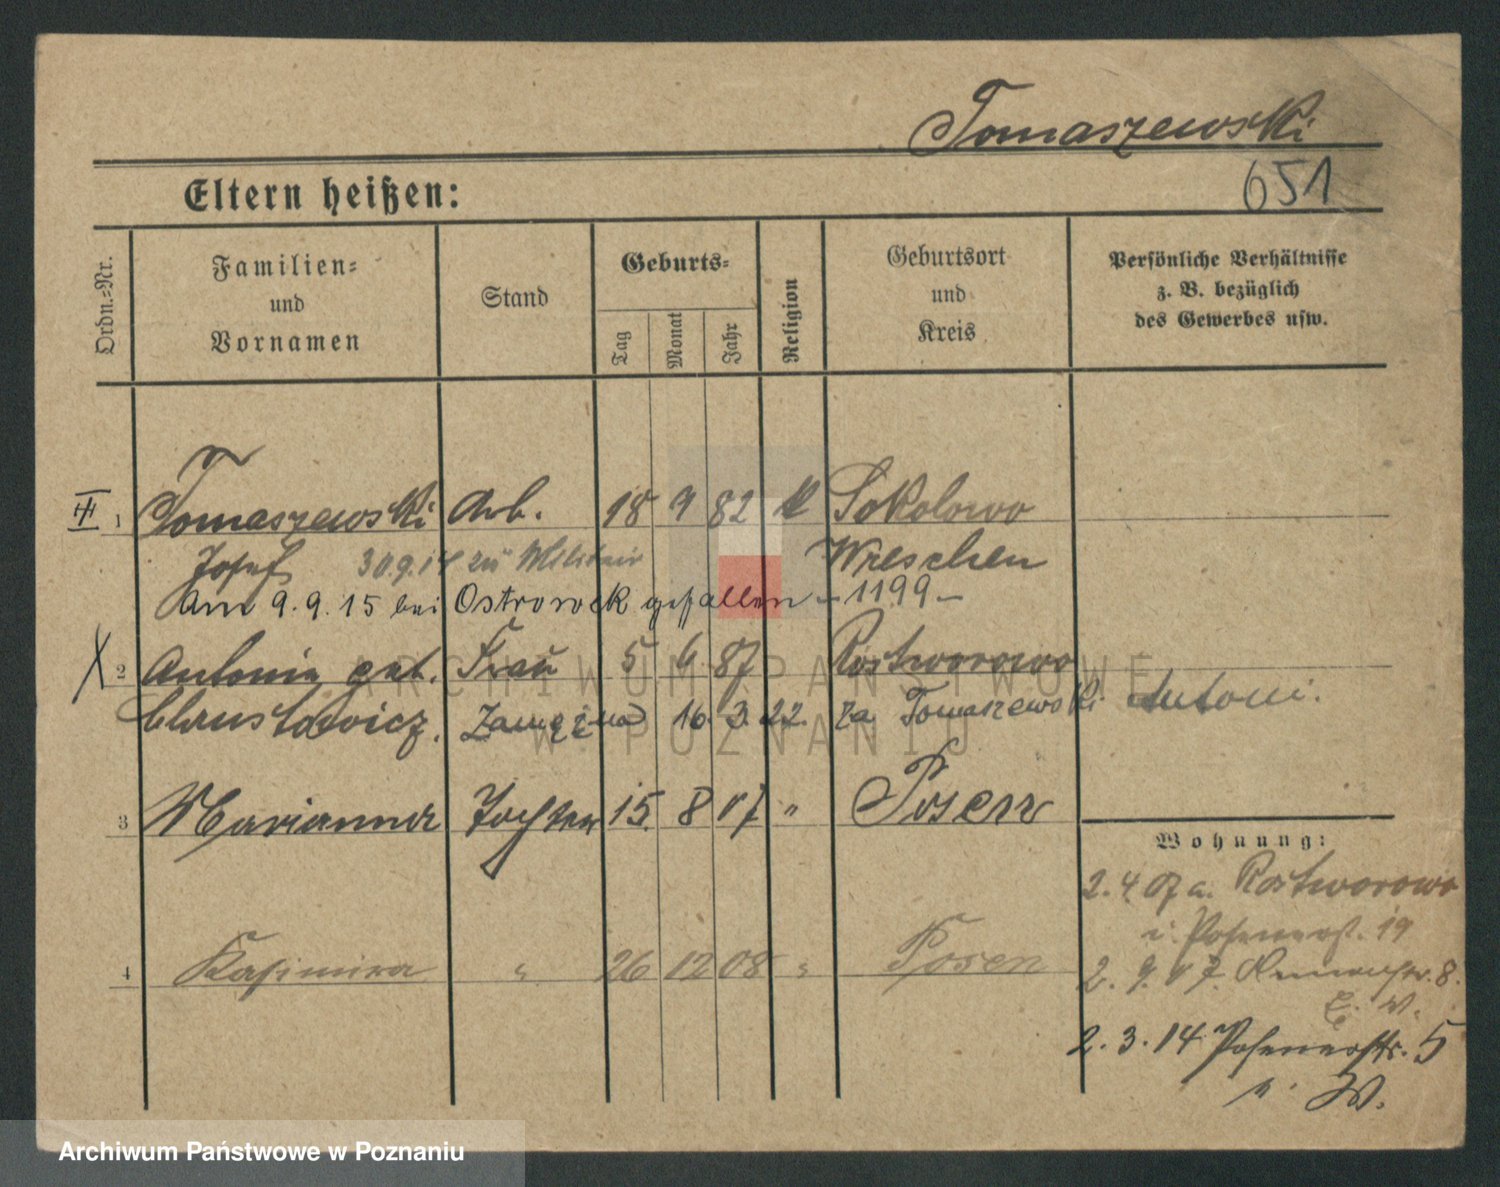 Tomaszewski
651
Eltern heißen:
Ordn.=Nr.
Familien=
und
Vornamen
Stand
Geburts=
Tag
Monat
Jahr
Religion
Geburtsort
und
Kreis
Persönliche Verhältnisse
z. B. bezüglich
des Gewerbes usw.
1 Tomaszewski Arb. 18 9 82 k Sokolowo
Josef 30.9.14 zu Militair Wreschen
Am 9.9.15 bei Ostrowek gefallen – 1199 –
2 Antonie geb. Frau 5 6 87 Rostworowo
Chrustowicz. Zamężna 16. 3. 22. za Tomaszewski Antoni.
3 Marianna Tochter 15. 8 07 " Posen
4 Kasimira " 26 12 08 " Posen
Wohnung:
2. 4 07 a. Rostworowo
i. Posenerst. 19
2. 9. 07. 8.
2. 3. 14 Posenerstr. 5
W.
ARCHIWUM PAŃSTWOWE
W POZNANIU
Archiwum Państwowe w Poznaniu